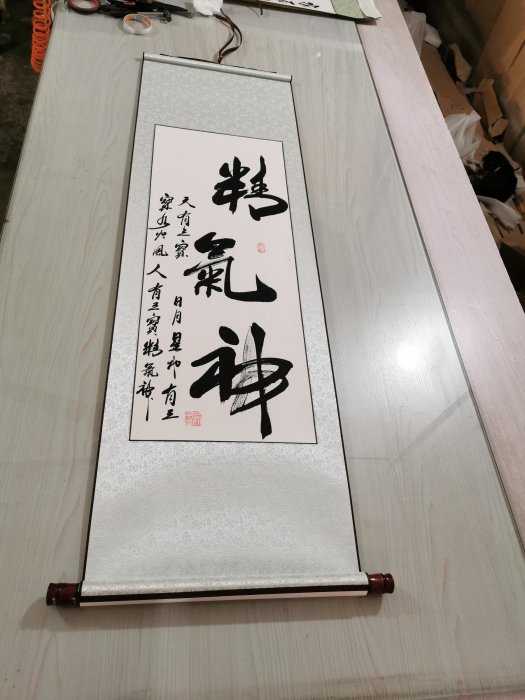 精氣神
天有三寶日月星地有三
寶水火風人有三寶精氣神